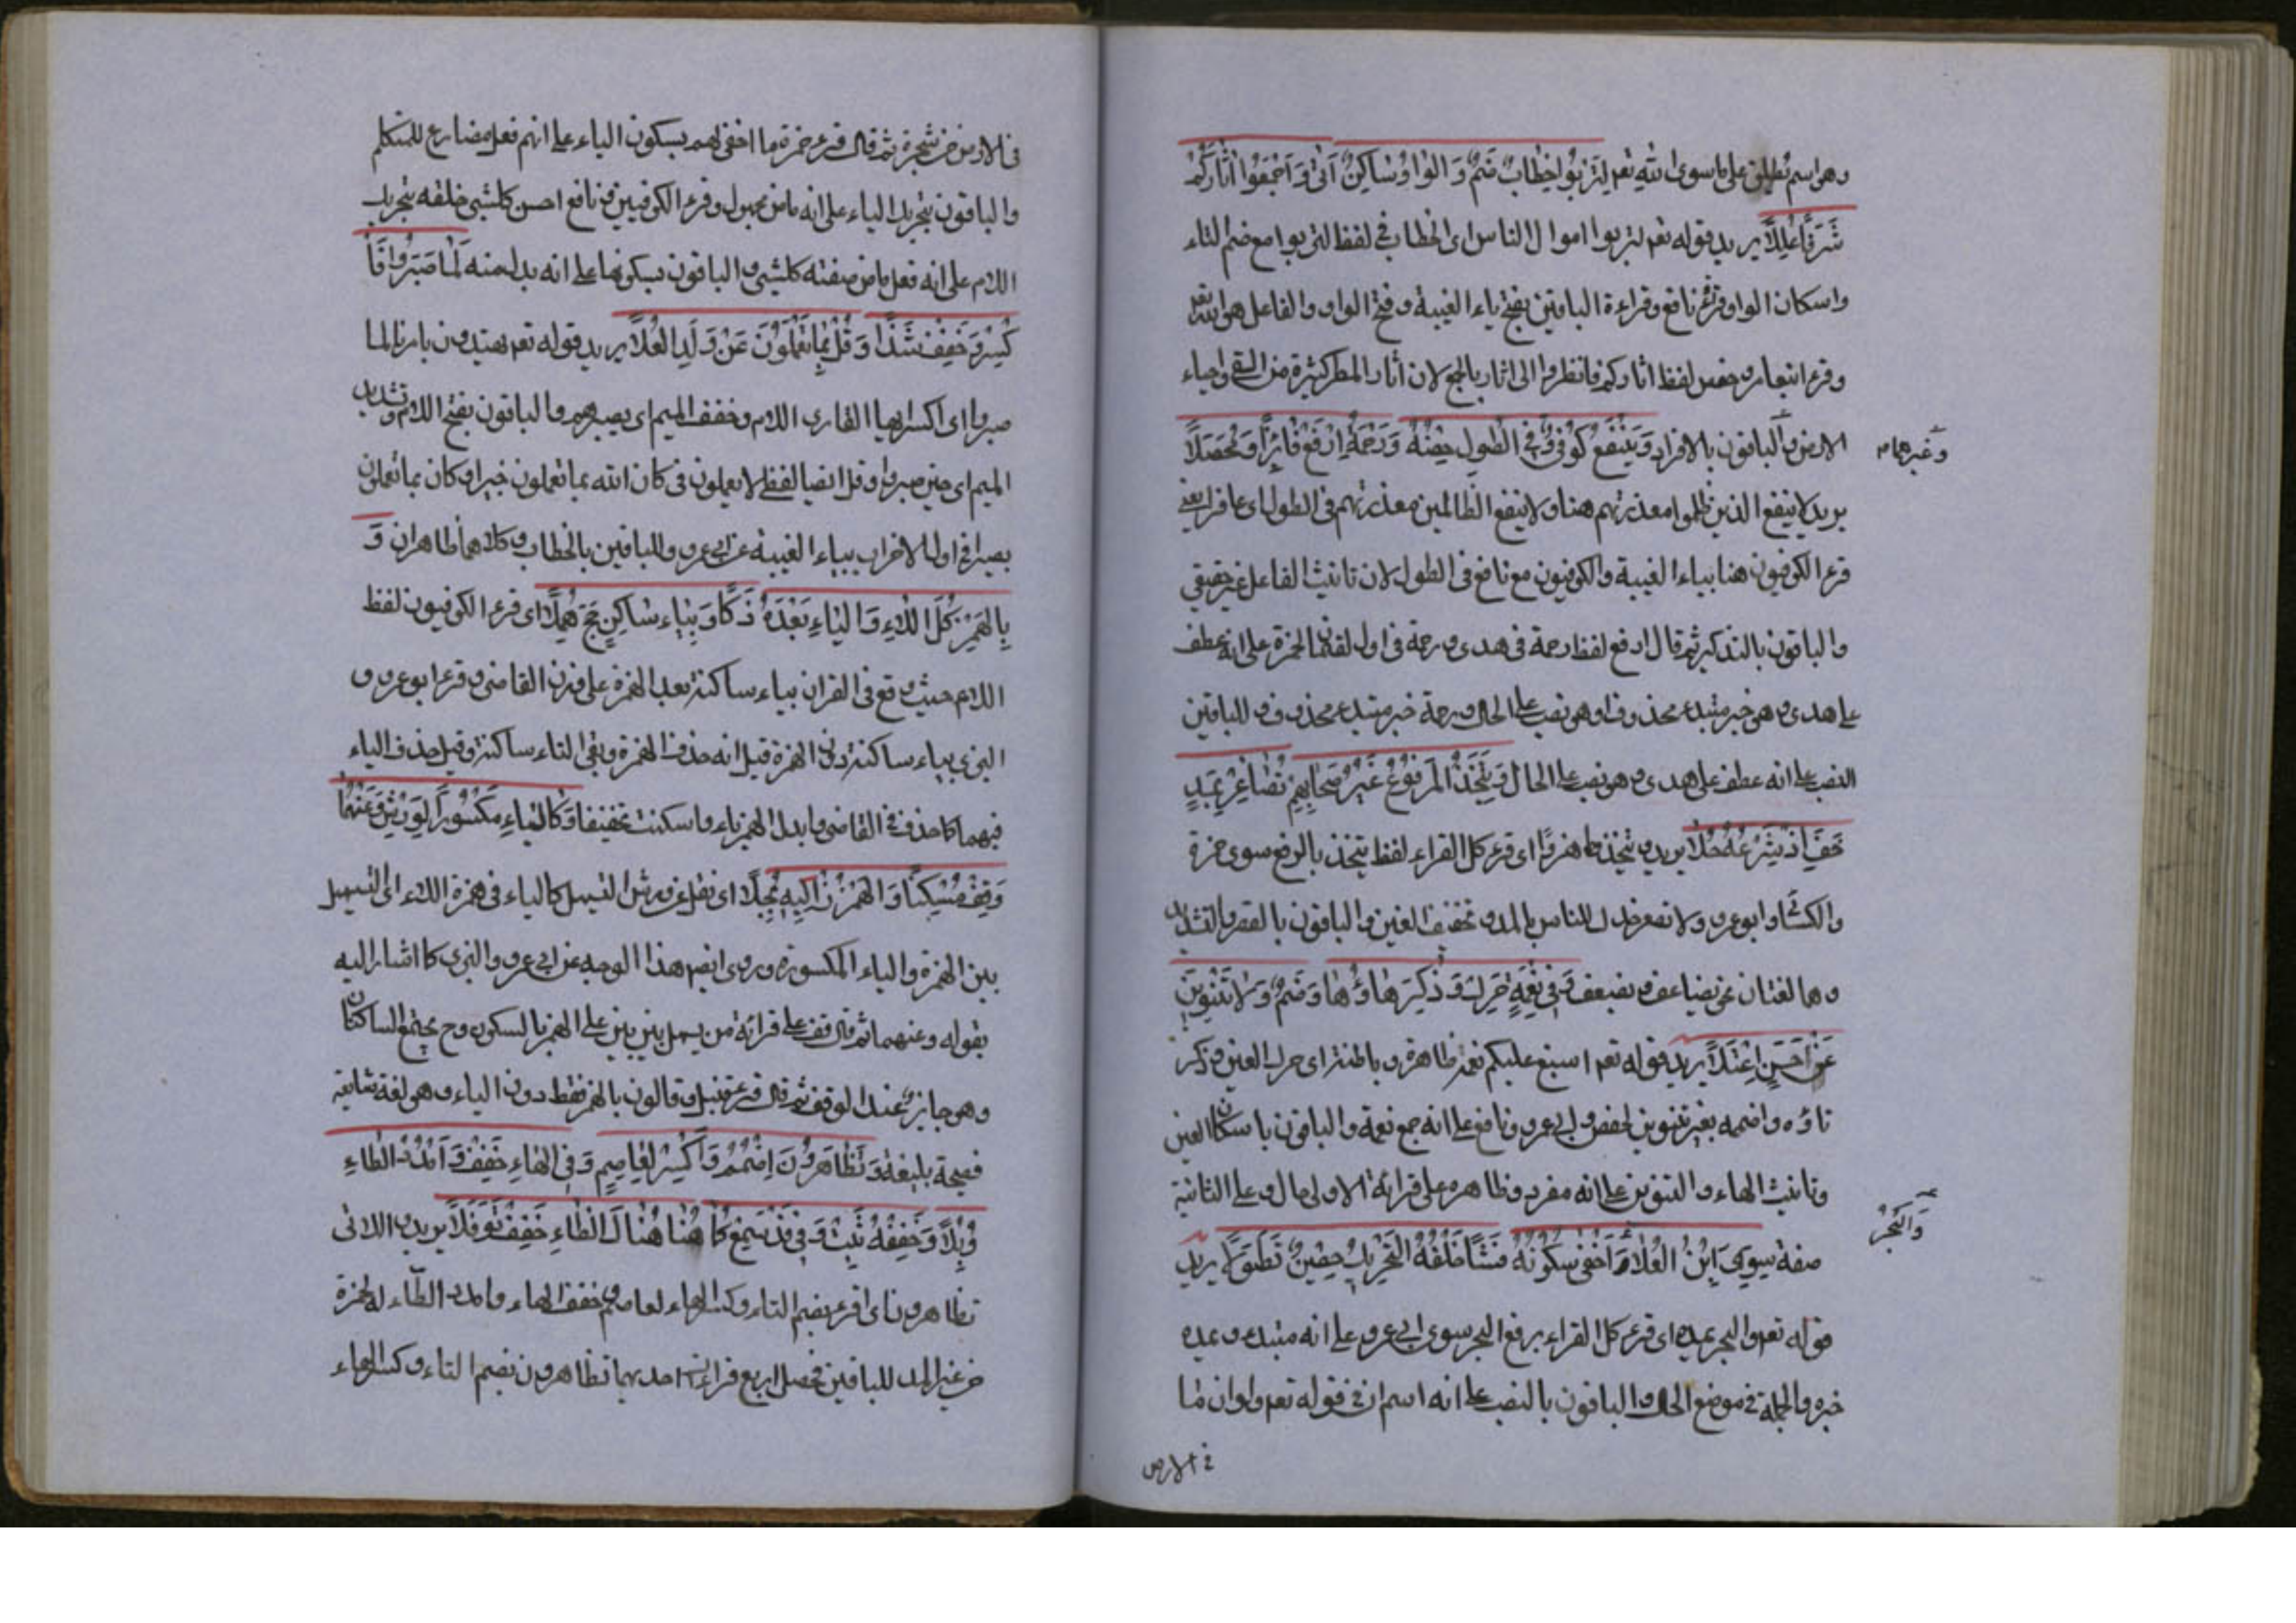 وهو اسم يطلق على ما سوى الله تعم لِتُرْبُوا خِطَابٌ ضُمَّ وَالْوَاوُ سَاكِنٌ اَتٰى وَاَجْمَعُوا اٰثَارِكُمْ
شَرَفًا عَلَا يريد قوله تعم لتربوا اموال الناس اى الخطاب فى لفظ لتربوا مع ضم التاء
واسكان الواو قرء نافع وقراءة الباقين بفتح ياء الغيبة وفتح الواو والفاعل هو الله تعم
وقرء ابن عامر وحفص لفظ اثاركم فانظروا الى اثار بالجمع لان أثار المطر كثيرة من السقى واحياء
الارض وغيرهما والباقون بالافراد وَيَنْفَعُ كُوفِيٌّ وَفِي الطَّوْلِ حِصْنُهُ وَرَحْمَةً اِرْفَعْ فَائِزًا وَمُحَصِّلَا
يريد لا ينفع الذين ظلموا معذرتهم هنا ولا ينفع الظالمين معذرتهم فى الطول اى غافر يعنى
قرء الكوفيون هنا بياء الغيبة والكوفيون مع نافع فى الطول لان تانيث الفاعل غير حقيقى
والباقون بالتذكير ثم قال ارفع لفظ رحمة فى هدى ورحمة فى اول لقمان لحمزة على انه عطف
على هدى وهو خبر مبتدء محذوف او هو نصب على الحال ورحمة خبر مبتدء محذوف وللباقين
النصب على انه عطف على هدى وهو نصب على الحال وَيَتَّخِذُ الْمَرْفُوعُ غَيْرُ صِحَابِهِمْ تُصَاعِرْ بِمَدٍّ
خَفَّ اِذْ شَرْعُهُ حَلَا يريد ويتخذها هزوًا اى قرء كل القراء لفظ يتخذ بالرفع سوى حمزة
والكسائى وابو عمرو ولا تصعر خدك للناس بالمد وتخفيف العين والباقون بالقصر والتشديد
وهما لغتان نحو يضاعف ويضعف وَفِي نِعْمَةٍ حَرِّكْ وَذُكِّرَ هَاؤُهَا وَضُمَّ وَلَا تَنْوِينَ
عَنْ حُسْنٍ اعْتَلَا يريد قوله تعم اسبغ عليكم نعمه ظاهرة وباطنة اى حرك العين وذكر
تاؤه واضممه بغير تنوين لحفص وابى عمرو ونافع على انه جمع نعمة والباقون باسكان العين
وتانيث الهاء والتنوين على انه مفرد وظاهره على قرائة الاولى حال وعلى الثانية
صفة سِوَى ابْنُ الْعَلَا وَالْبَحْرُ اَخْفَى سُكُونُهُ فَشَا خَلْقَهُ التَّحْرِيكُ حِصْنٌ تَطَوَّلَا يريد
قوله تعم والبحر يمده اى قرء كل القراء برفع البحر سوى ابى عمرو على انه مبتدء ويمده
خبره والجملة فى موضع الحال والباقون بالنصب على انه اسم ان فى قوله تعم ولو ان ما
فى الارض
فى الارض من شجرة ثم قال قرء حمزة ما اخفى لهم بسكون الياء على انه فعل مضارع للمتكلم
والباقون بتحريك الياء على انه ماض مجهول وقرء الكوفيين ونافع احسن كل شيئ خلقه بتحريك
اللام على انه فعل ماض صفته كل شيئ والباقون بسكونها على انه بدل منه لَمَّا صَبَرُوا فَا
كْسِرْ وَخَفِّفْ شَذًا وَقُلْ بِمَا يَعْمَلُونَ عَنْ وَلَدِ الْعَلَا يريد قوله تعم يهتدون بامرنا لما
صبروا اى اكسر ايها القارى اللام وخفف الميم اى بصبرهم والباقون بفتح اللام وتشديد
الميم اى حين صبروا وقل ايضا لفظ لا يعلمون فى كان الله بما تعملون خبيرا وكان بما تعملون
بصيرا فى اول الاحزاب بياء الغيبة عن ابى عمرو وللباقين بالخطاب وكلاهما ظاهران وَ
بِالْهَمْزِ كُلُّ اللَّاءِ وَالْيَاءِ بَعْدَهُ ذَكَا وَبِيَاءٍ سَاكِنٍ حَجَّ هُمَّلَا اى قرء الكوفيون لفظ
اللاء حيث وقع فى القران بياء ساكنة بعد الهمزة على وزن القاضى وقرء ابو عمرو و
البزى بياء ساكنة دون الهمزة قيل انه حذف الهمزة وبقى التاء ساكنة وقيل حذف الياء
فيهما كما حذف فى القاضى وابدل الهمز ياء واسكنت تخفيفا وَكَالْيَاءِ مَكْسُورًا لِوَرْشٍ وَعَنْهُمَا
وَقِفْ مُسْكِنًا وَالْهَمْزُ زَاكِيهِ بُجِّلَا اى نقل عن ورش التسهيل كالياء فى همزة اللاء اى التسهيل
بين الهمزة والياء المكسورة وروى ايضم هذا الوجه عن ابى عمرو والبزى كما اشار اليه
بقوله وعنهما ثم قال قف على قرائة من يسهل بين بين على الهمز بالسكون وح يجتمع الساكنان
وهو جايز عند الوقف ثم قال قرء قنبل وقالون بالهمز فقط دون الياء وهى لغة شايعة
فصيحة بليغة وَتَظَّاهَرُونَ اضْمُمْهُ وَاكْسِرْ لِعَاصِمٍ وَفِي الْهَاءِ خَفِّفْ وَامْدُدِ الظَّاءَ
ذُبَّلَا وَخَفَّفَهُ ثَبْتٌ وَفِي قَدْ سَمِعْ كَمَا هُنَا هُنَاكَ الظَّاءُ خُفِّفَ نَوْفَلَا يريد اللائى
تظاهرون اى اقرء بضم التاء وكسر الهاء لعاصم وخفف الهاء وامدد الظاء له لحمزة
من غير المد للباقين فحصل اربع قراءات احديها تظاهرون بضم التاء وكسر الهاء